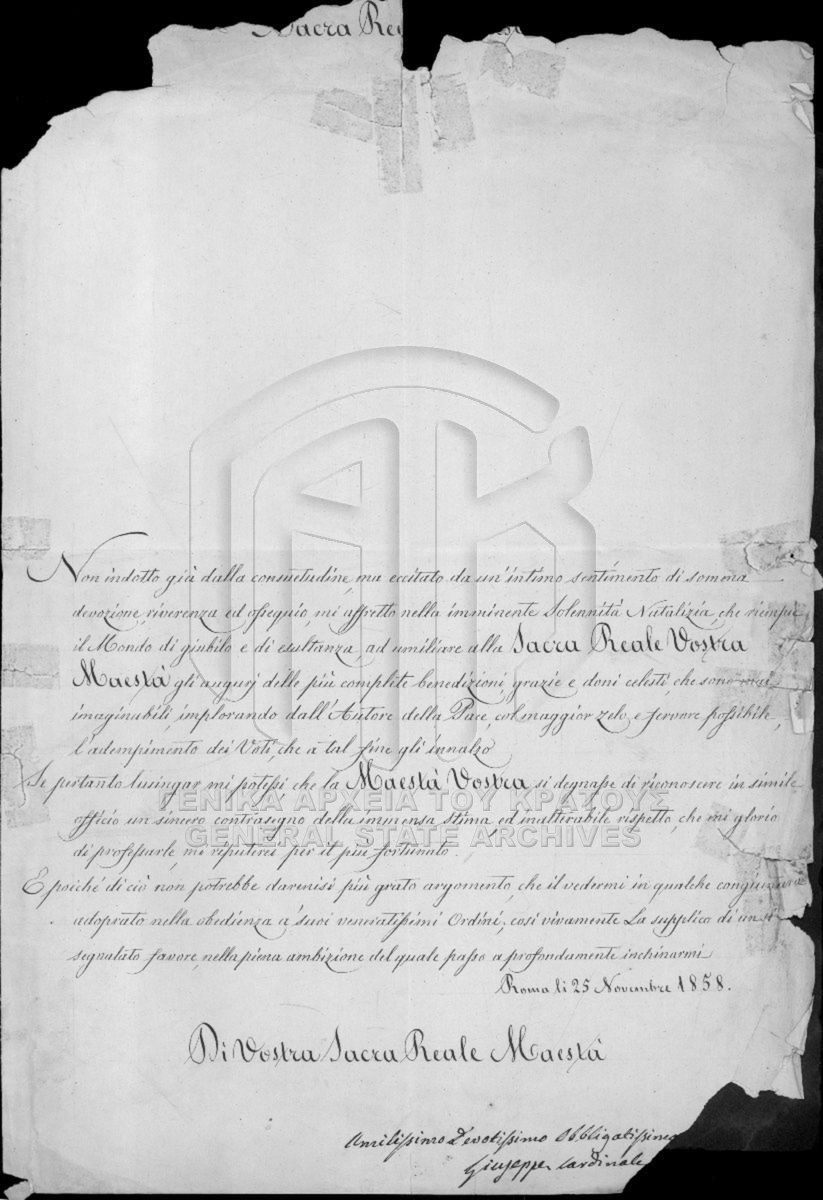 Sacra Re
Non indotto già dalla consuetudine, ma eccitato da un'intimo sentimento di somma
devozione, riverenza ed ossequio, mi affretto nella imminente Solennità Natalizia, che riempie
il Mondo di giubilo e di esultanza, ad umiliare alla Sacra Reale Vostra
Maestà gli augurj delle più complete benedizioni, grazie e doni celesti, che sono mai
imaginabili, implorando dall'Autore della Pace, col maggior zelo, e fervore possibile,
l'adempimento dei Voti, che a tal fine gli innalzo
Se pertanto lusingar mi potessi che la Maestà Vostra si degnasse di riconoscere in simile
officio un sincero contrasegno della immensa stima, ed inalterabile rispetto, che mi glorio
di professarle, mi reputerei per il più fortunato.
ΓΕΝΙΚΑ ΑΡΧΕΙΑ ΤΟΥ ΚΡΑΤΟΥΣ
GENERAL STATE ARCHIVES
E poiché di ciò non potrebbe darmisi più grato argomento, che il vedermi in qualche congiuntura
adoprato nella obedienza a' suoi veneratissimi Ordini, così vivamente La supplico di un sì
segnalato favore, nella piena ambizione del quale passo a profondamente inchinarmi
Roma li 25 Novembre 1858.
Di Vostra Sacra Reale Maestà
Umilissimo Devotissimo Obbligatissimo
Giuseppe Cardinale